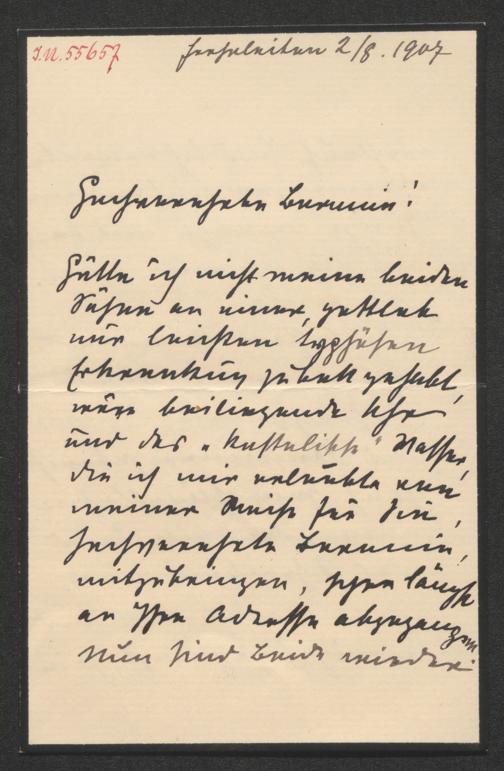 I.N. 55657
Ferleiten 2/8. 1907
Hochverehrte Baronin!
Hätte ich nicht meine beiden
Söhne an einer, gottlob
nur leichten typhösen
Erkrankung zu Bett gehabt,
wäre beiliegende Uhr
und das „kastalische“ Wasser,
die ich mir erlaubte von
meiner Reise für Sie,
hochverehrte Baronin,
mitzubringen, schon längst
an Ihre Adresse abgegangen
Nun sind beide wieder